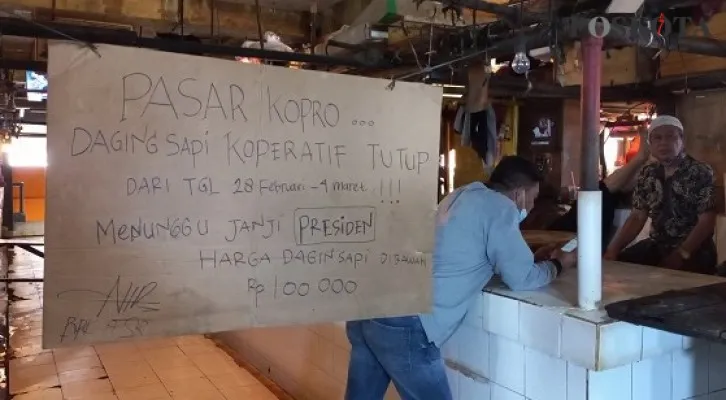 POSKOTA
PASAR KOPRO ...
DAGING SAPI KOPERATIF TUTUP
DARI TGL 28 Februari - 4 maret !!!
MENUNGGU JANJI PRESIDEN
HARGA DAGIN SAPI DIBAWAH
Rp 100 000